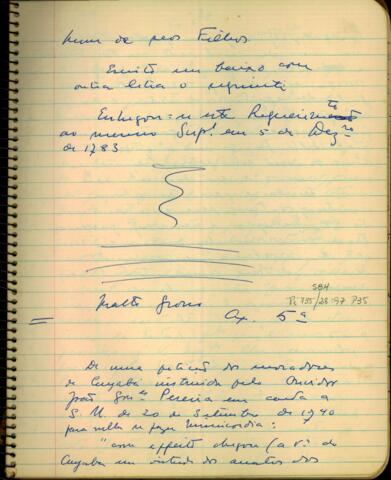 hum de seos Filhos
Escrito em baixo com
outra letra o seguinte
Entregou-se este Requerim.to
ao mesmo Sup.e em 5 de Dez.ro
de 1783
SBH
Pi 735/28:97 P35
Matto Grosso
Cx. 5ª
De uma petição dos moradores
de Cuyabá instruida pelo Ouvidor
João Gon.es Pereira em carta a
S. M. de 20 de Setembro de 1740
para melhor se fazer Misericordia:
"com effeito chegou (a v.a do
Cuyaba em virtude dos dos